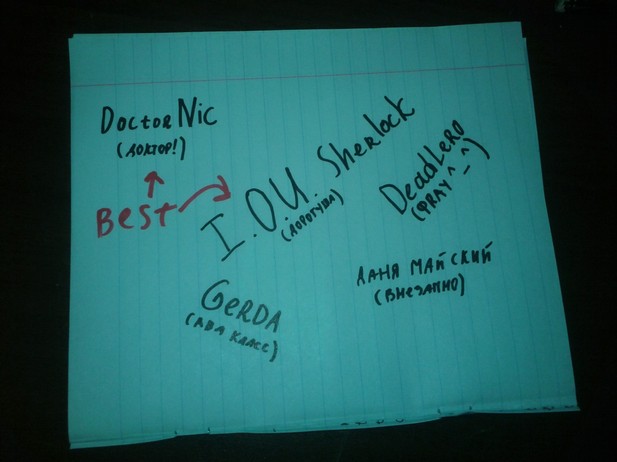 Doctor Nic
(ДОКТОР!)
Best
I.OU. Sherlock
(ДОРОГУША)
DeadLero
(ФRAY ^_^)
GeRDA
(АВА КЛАСС)
ДАНЯ МАЙСКИЙ
(ВНЕЗАПНО)